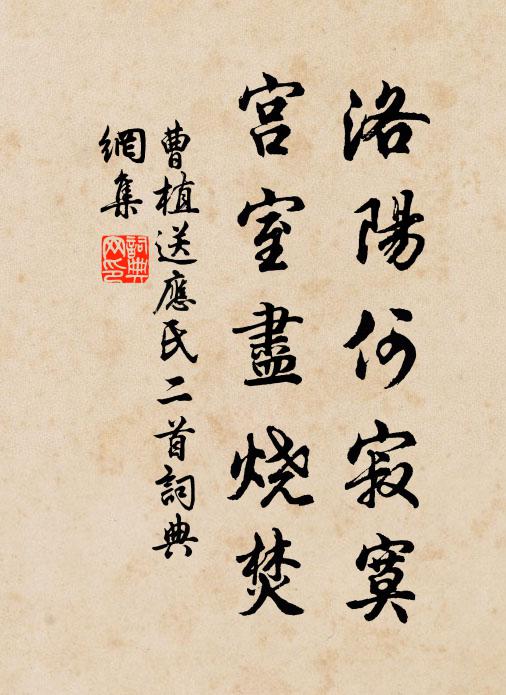 洛陽何寂寞
宮室盡烧焚
曹植送應氏二首詞典
網集
詞典网印